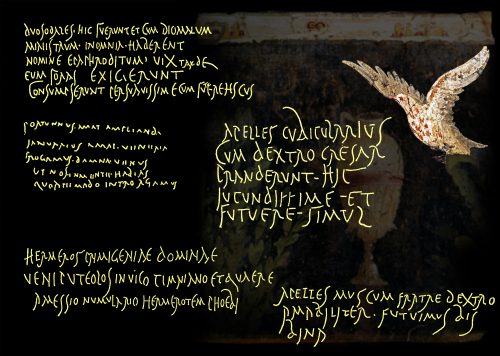 DUO SODALES · HIC FUERUNT ET CUM DIU MALUM
MINISTRUM · IN OMNIA HABERENT
NOMINE EPAPHRODITUM · VIX TARDE
EUM FORAS EXIGERUNT
CONSUMPSERUNT PERSUAVISSIME CUM FUTERE HSCVS
PORTUMNUS · AMAT AMPLIANDA
IANUARIUS AMAT · VENERIA
ROGAMUS · DAMNA VENUS
UT NOS IN MENTE HABIAS
QUD TE MODO INTRORGAMUS
APELLES CUBICULARIUS
CUM DEXTRO CAESAR
PRANDERUNT · HIC
IUCUNDISSIME · ET
FUTUERE · SIMUL
HERMEROS PRIMIGENIAE DOMINAE
VENI PUTEOLOS IN VICO TIMNIANO ET QUAERE
A MESSIO NUMULARIO HERMEROTEM PHOEBI
APELLES MUS CUM FRATRE DEXTRO
AMABILITER · FUTUIMUS BIS
BINA